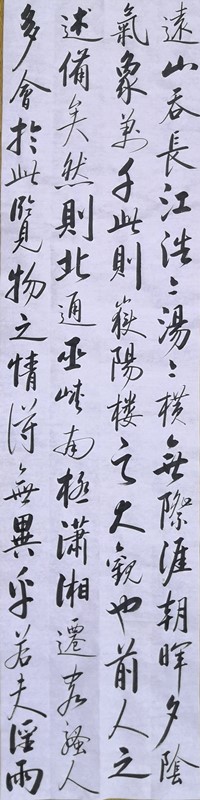 遠山吞長江浩〻湯〻橫無際涯朝暉夕陰
氣象萬千此則嶽陽楼之大觀也前人之
述備矣然則北通巫峽南極瀟湘遷客騷人
多會於此覽物之情得無異乎若夫淫雨